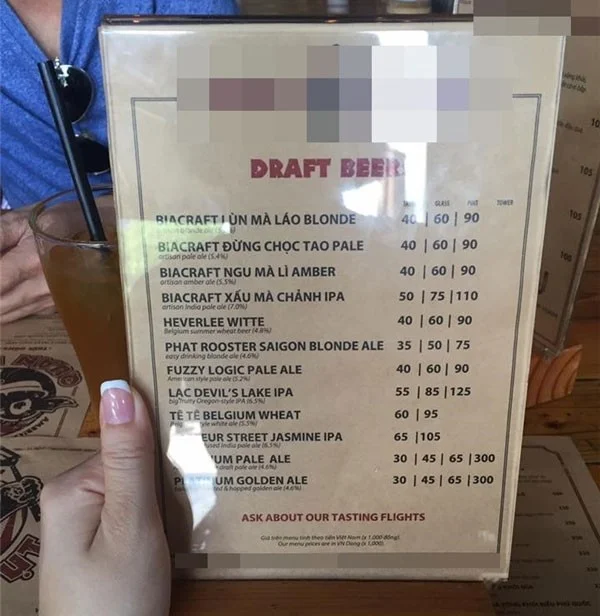 DRAFT BEER
GLASS PINT TOWER
BIACRAFT LÙN MÀ LÁO BLONDE 40 | 60 | 90
BIACRAFT ĐỪNG CHỌC TAO PALE 40 | 60 | 90
artisan pale ale (5.4%)
BIACRAFT NGU MÀ LÌ AMBER 40 | 60 | 90
artisan amber ale (5.5%)
BIACRAFT XẤU MÀ CHẢNH IPA 50 | 75 | 110
artisan India pale ale (7.0%)
HEVERLEE WITTE 40 | 60 | 90
Belgium summer wheat beer (4.8%)
PHAT ROOSTER SAIGON BLONDE ALE 35 | 50 | 75
easy drinking blonde ale (4.6%)
FUZZY LOGIC PALE ALE 40 | 60 | 90
American style pale ale (5.2%)
LAC DEVIL'S LAKE IPA 55 | 85 | 125
big fruity Oregon-style IPA (6.5%)
TÊ TÊ BELGIUM WHEAT 60 | 95
style white ale (5.5%)
STREET JASMINE IPA 65 | 105
India pale ale (6.5%)
PALE ALE 30 | 45 | 65 | 300
draft pale ale (4.6%)
GOLDEN ALE 30 | 45 | 65 | 300
& hopped golden ale (4.6%)
ASK ABOUT OUR TASTING FLIGHTS
Giá trên menu tính theo tiền Việt Nam (x 1,000 đồng).
Our menu prices are in VN Dong (x 1,000).
105
105